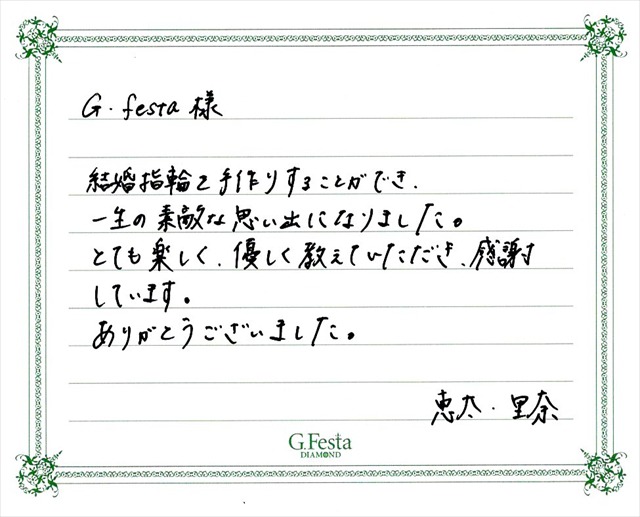 G.festa 様
結婚指輪を手作りすることができ、
一生の素敵な思い出になりました。
とても楽しく、優しく教えていただき、感謝
しています。
ありがとうございました。
恵太・里奈
G.Festa
DIAMOND